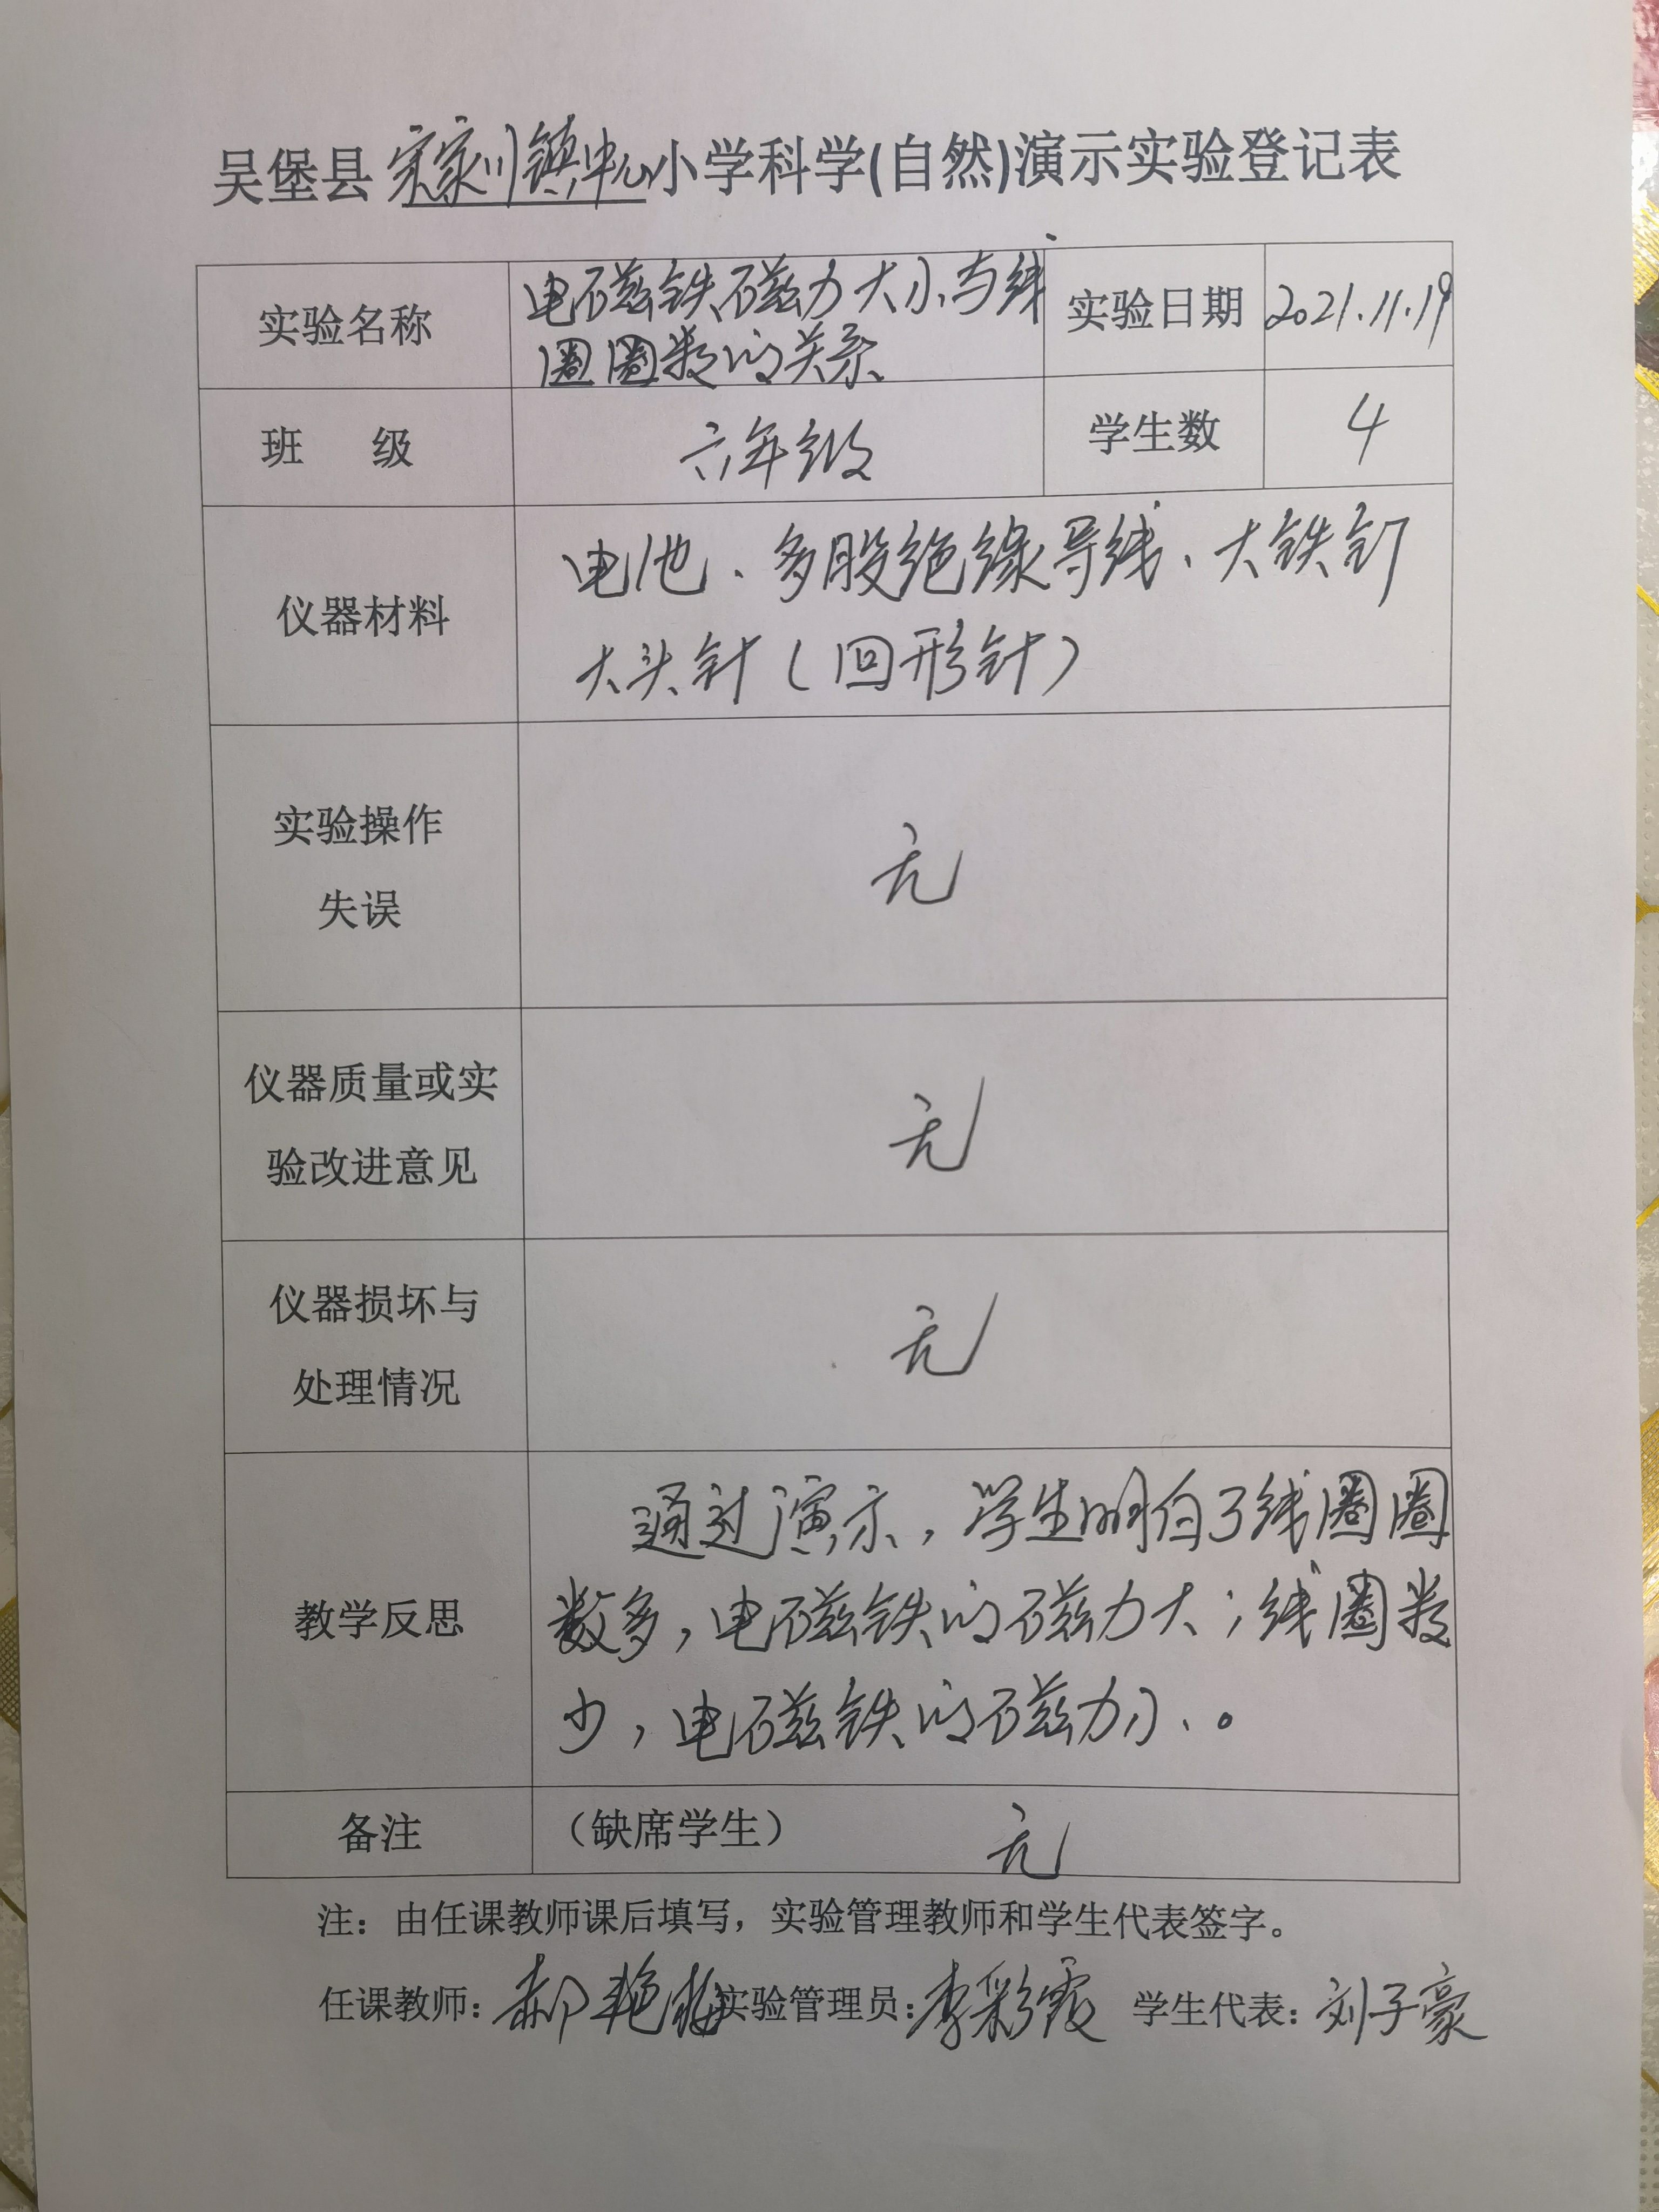 吴堡县宋家川镇中心小学科学(自然)演示实验登记表
实验名称 电磁铁磁力大小与线 实验日期 2021.11.19
圈圈数的关系
班 级 六年级 学生数 4
电池、多股绝缘导线、大铁钉
仪器材料
大头针(回形针)
实验操作
失误
无
仪器质量或实
验改进意见
无
仪器损坏与
处理情况
无
通过演示,学生明白了线圈圈
教学反思 数多,电磁铁的磁力大;线圈数
少,电磁铁的磁力小。
备注 (缺席学生) 无
注:由任课教师课后填写,实验管理教师和学生代表签字。
任课教师:郝艳梅 实验管理员:李彩霞 学生代表:刘子豪